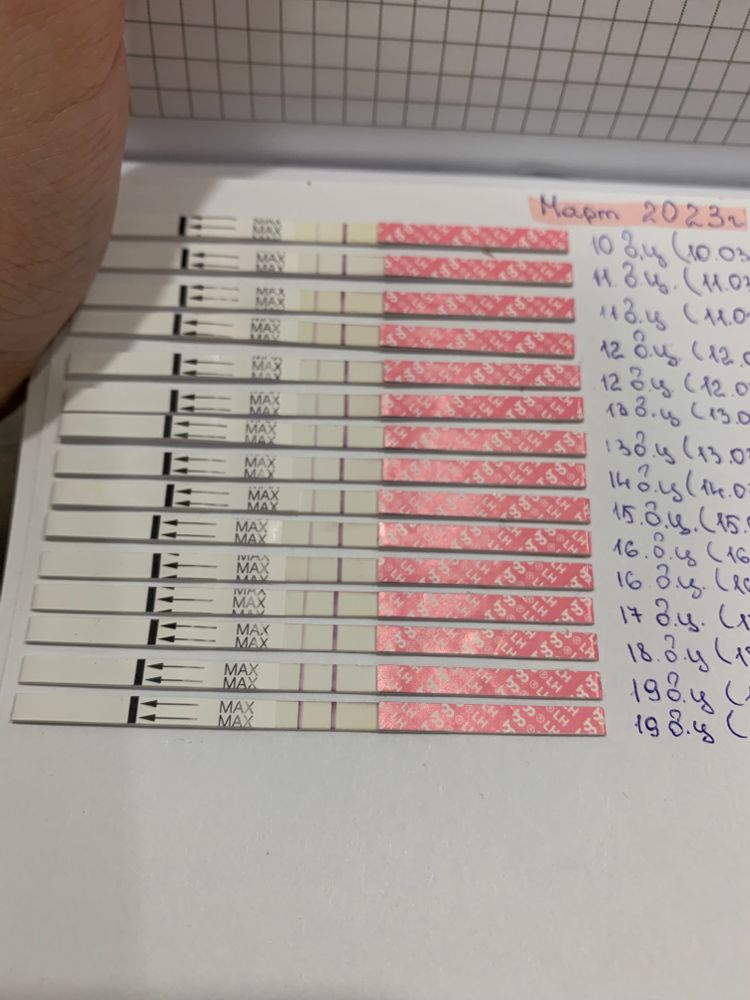 Март 2023г
MAX
MAX 10 д.ц (10.03
MAX
MAX 11 д.ц. (11.03
MAX
MAX 11 д.ц (11.0
MAX
MAX 12 д.ц. (12.0
MAX
MAX 12 д.ц (12.0
MAX
MAX 13 д.ц. (13.0
MAX
MAX 13 д.ц (13.03
MAX
MAX 14 д.ц (14.0
MAX
MAX 15. д.ц. (15.
MAX
MAX 16. д.ц (16
MAX
MAX 16 д.ц. (16
MAX
MAX 17 д.ц. (1
MAX
MAX 18. д.ц (1
MAX
MAX 19 д.ц (
MAX
MAX 19 д.ц (